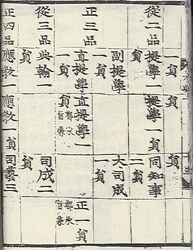 從二品
提學一員
同知事二員
正三品
副提學一員
大司成一員
直提學一員
直提學一員
正一員
從三品
典翰一員
司成二員
正四品
應敎一員
應敎一員
司藝三